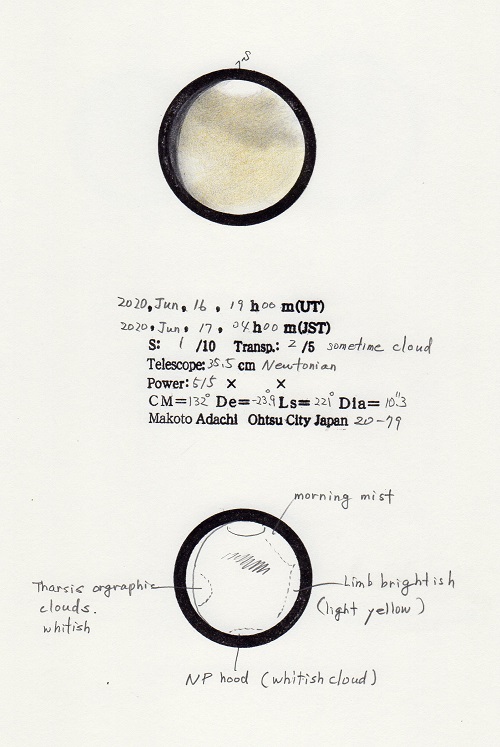 S
2020, Jun, 16, 19 h 00 m (UT)
2020, Jun, 17, 04 h 00 m (JST)
S: 1 /10 Transp.: 2 /5 sometime cloud
Telescope: 35.5 cm Newtonian
Power: 515 × ×
CM=132° De=-23.9° Ls=221° Dia=10".3
Makoto Adachi Ohtsu City Japan 20-79
morning mist
Tharsis orgraphic
clouds.
whitish
Limb brightish
(light yellow)
NP hood (whitish cloud)